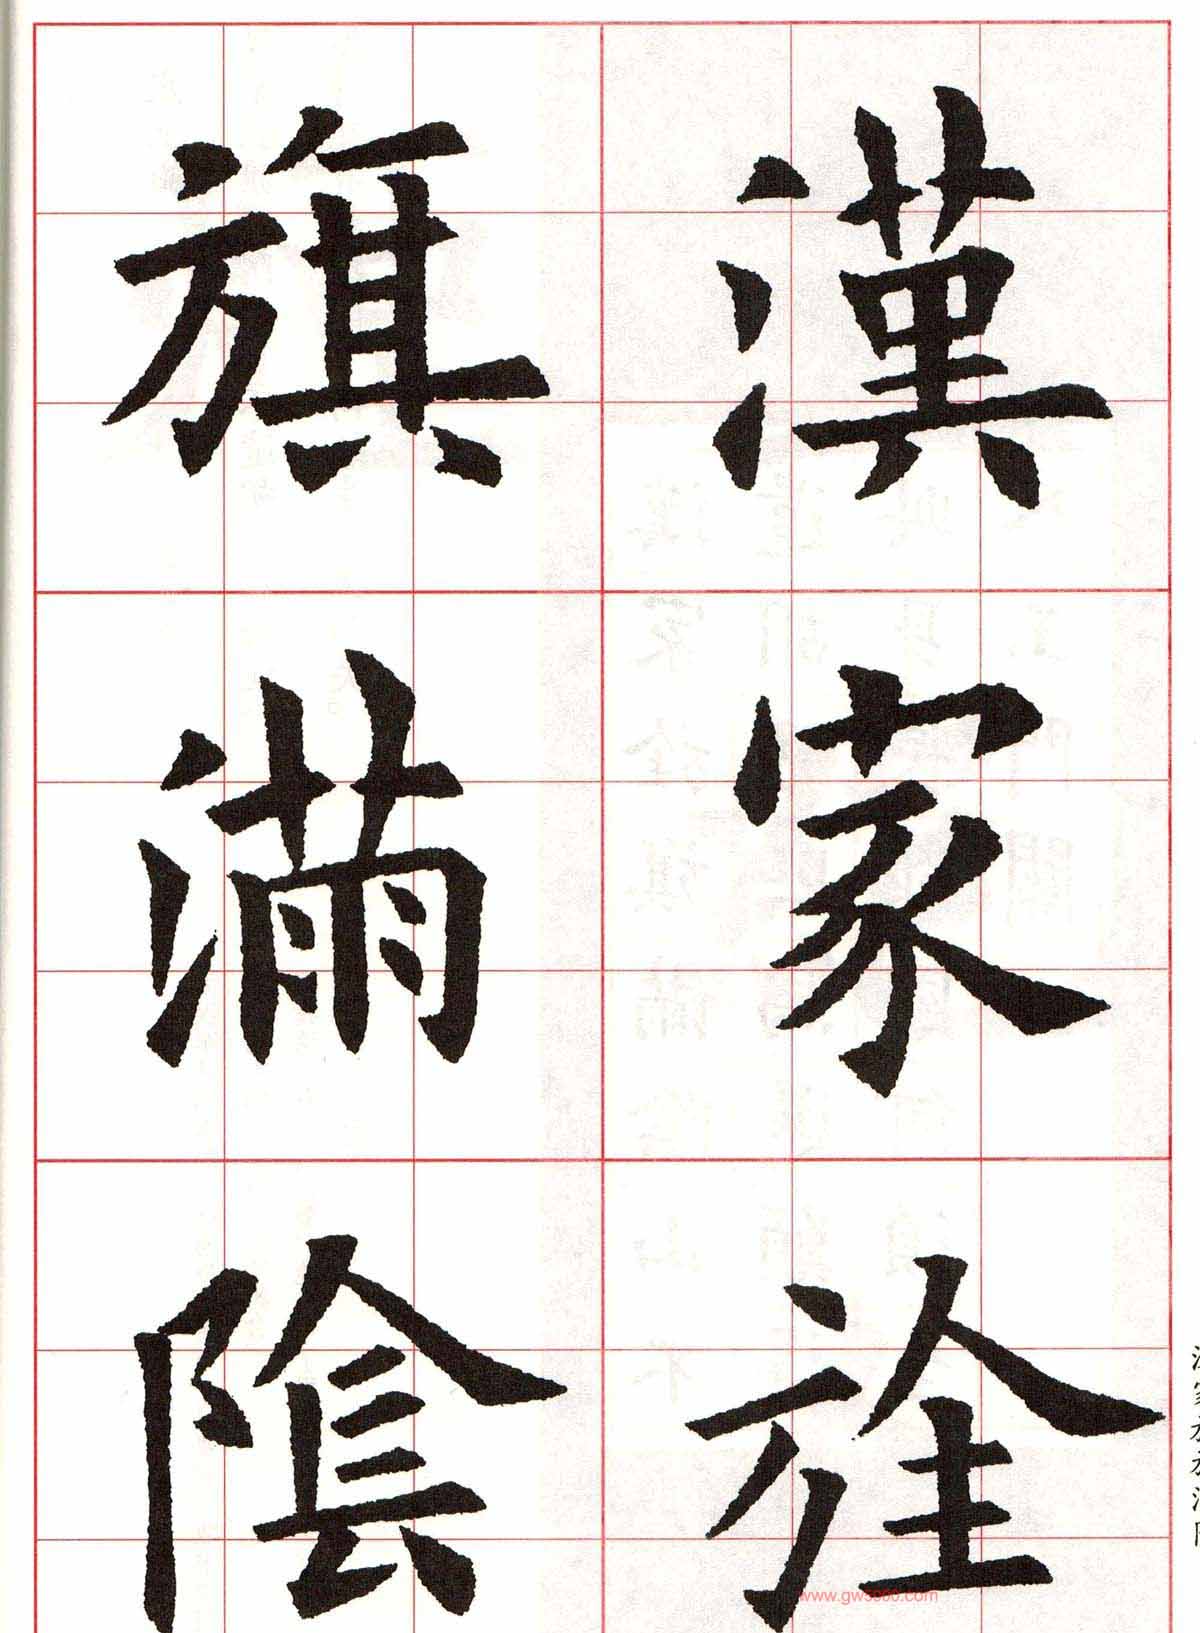 漢家旌
旗滿陰
www.gw3000.com